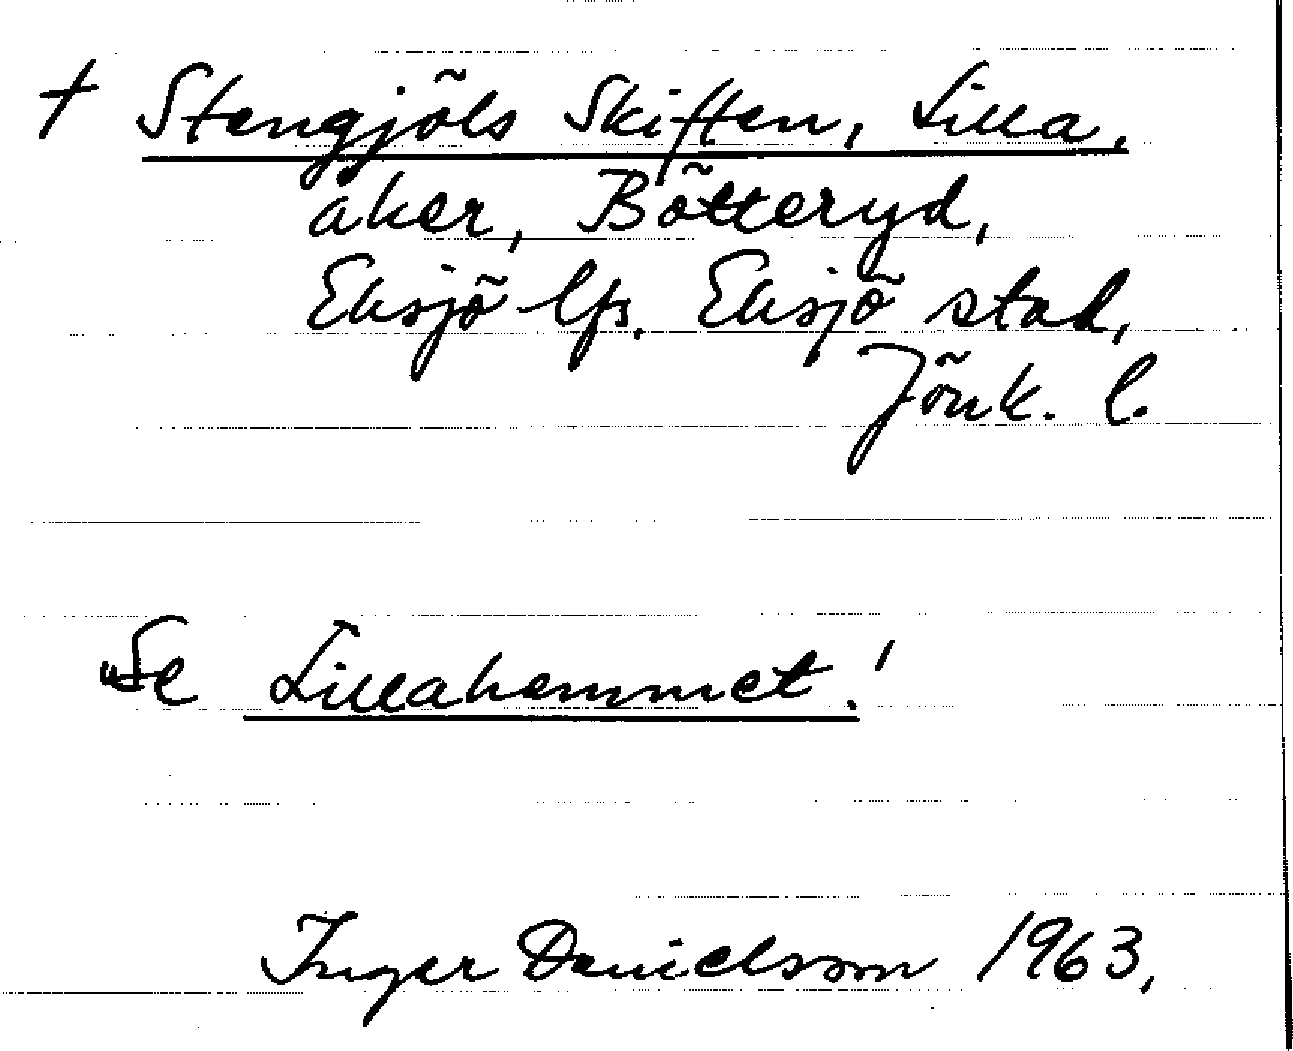 † Stengjöls Skiften, Lilla,
åker, Bötteryd,
Eksjö lfs. Eksjö stad,
Jönk. l.
Se Lillahemmet!
Inger Danielsson 1963,